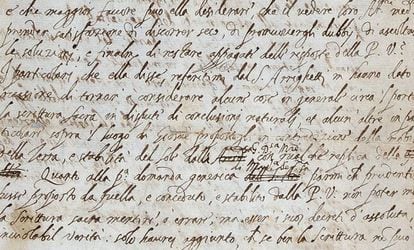 e che maggior favore può ella desiderare che il vedere
prender satisfazione di discorrer seco, di promuovergli dubbi, di ascoltar
le soluzioni, e finalm. di restare appagati delle risposte della P. V.?
I particolari, che ella disse, referitimi dal S. Arrighetti, m' hanno dato
di tornar a considerare alcune cose in generale circa
la scrittura sacra in dispute di conclusioni naturali, et alcun' altre in par
ticolari sopra il luogo di Giosue, proposto in
della terra, e stabilità del sole dalla con qual che replica della
Quanto alla p.a domanda generica parmi che prudent
fusse proposto da quella, e conceduto, e stabilito dalla P. V. non poter m
la scrittura sacra mentire, o errare, ma esser i suoi decreti d'assoluta
inviolabil verità: solo haurei aggiunto, che se ben la scrittura